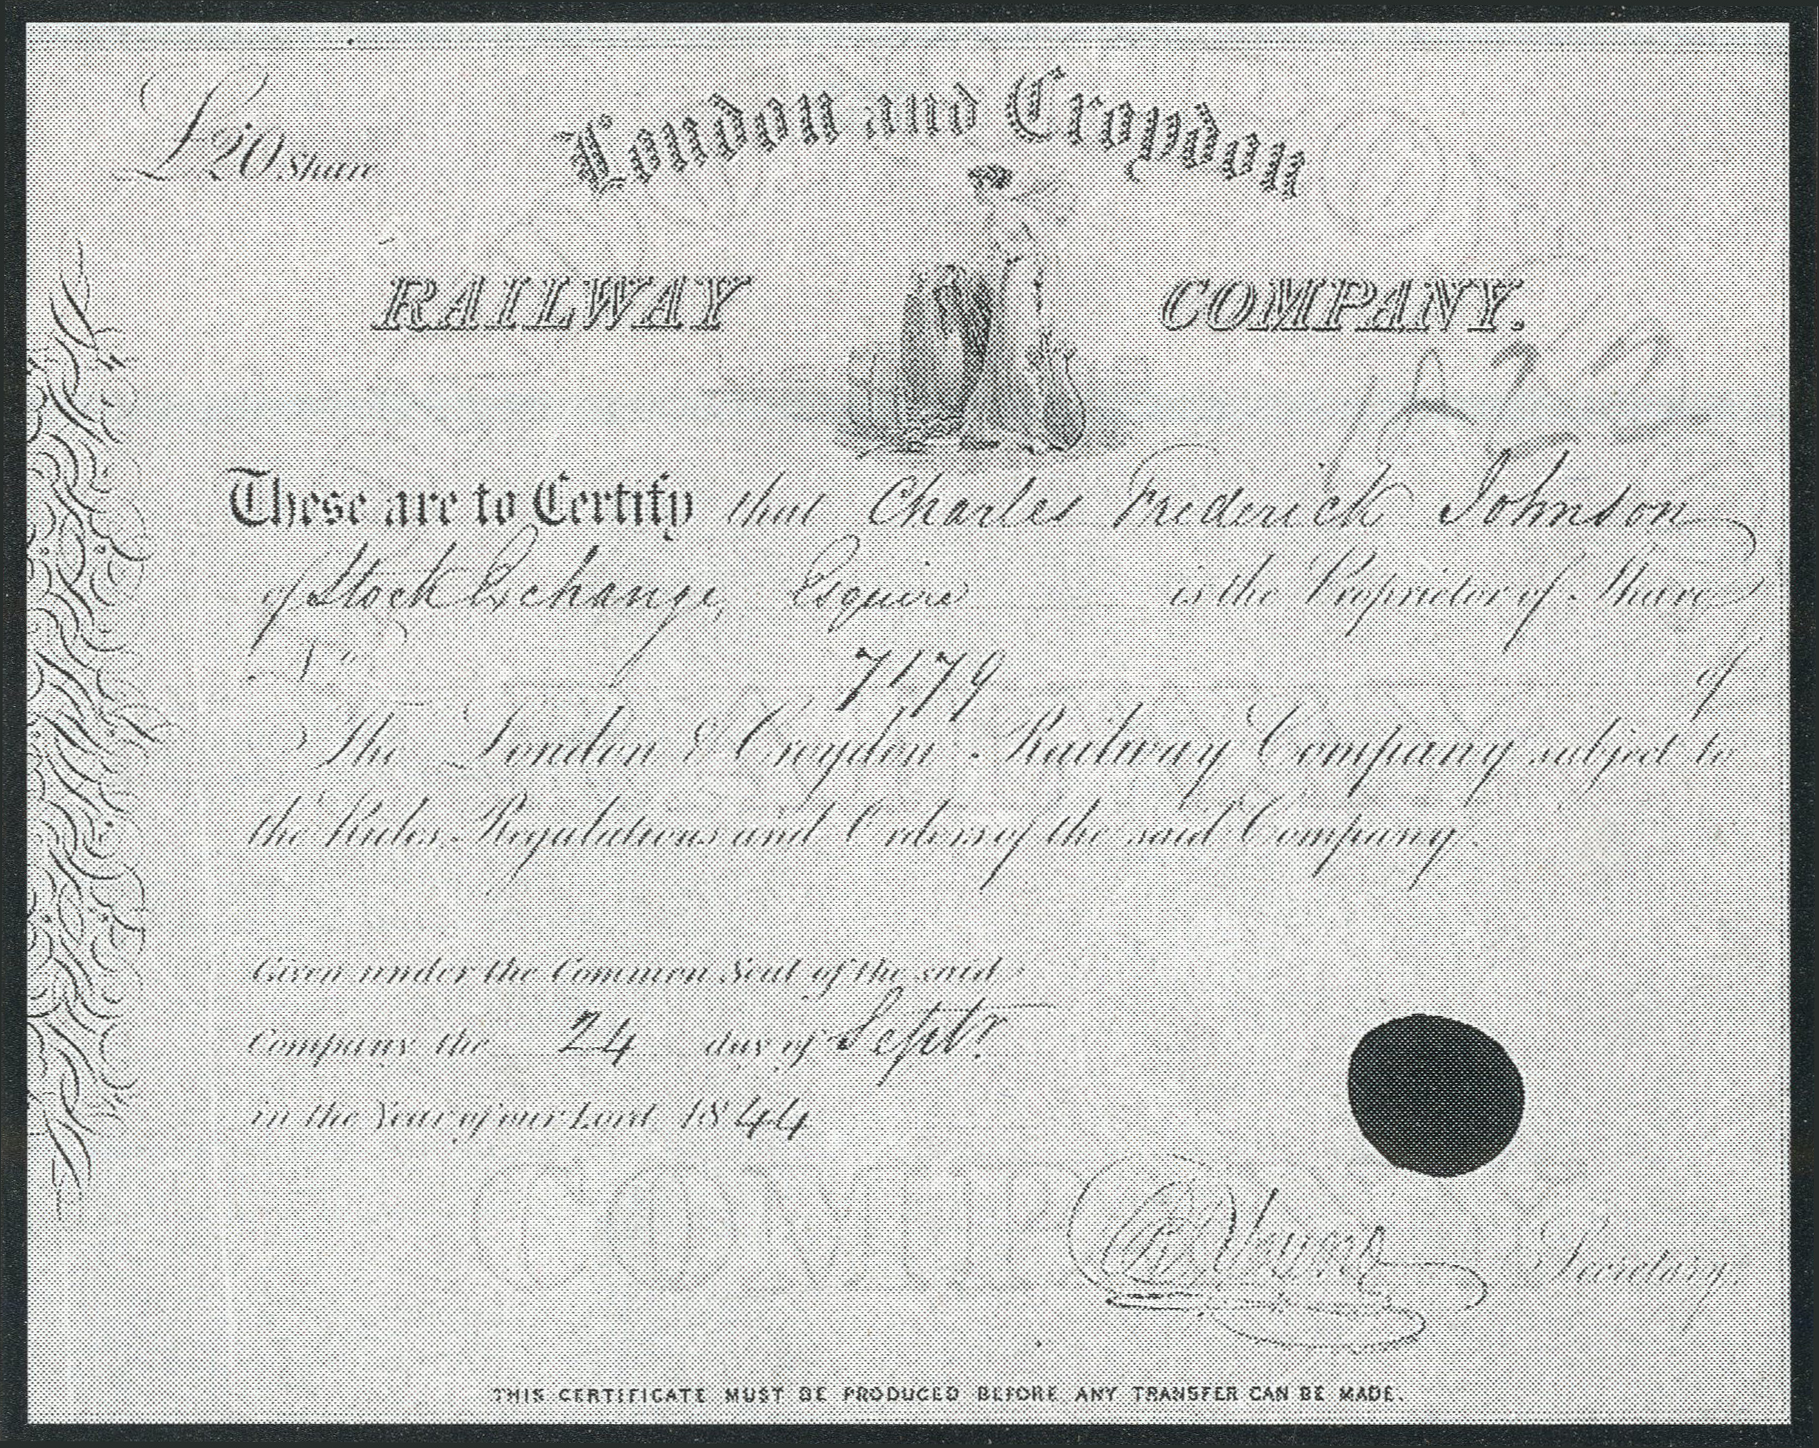 £20 Share
London and Croydon
RAILWAY COMPANY.
These are to Certify that Charles Frederick Johnson
of Stock Exchange, Esquire is the Proprietor of Share
No. 7179 of
The London & Croydon Railway Company subject to
the Rules, Regulations and Orders of the said Company.
Given under the Common Seal of the said
Company the 24 day of Septr.
in the Year of our Lord 1844
COMP
Secretary.
THIS CERTIFICATE MUST BE PRODUCED BEFORE ANY TRANSFER CAN BE MADE.